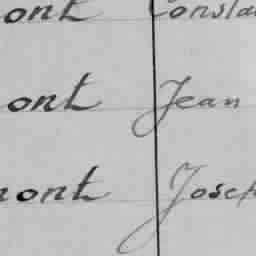 ont Consta
ont Jean
mont Josep